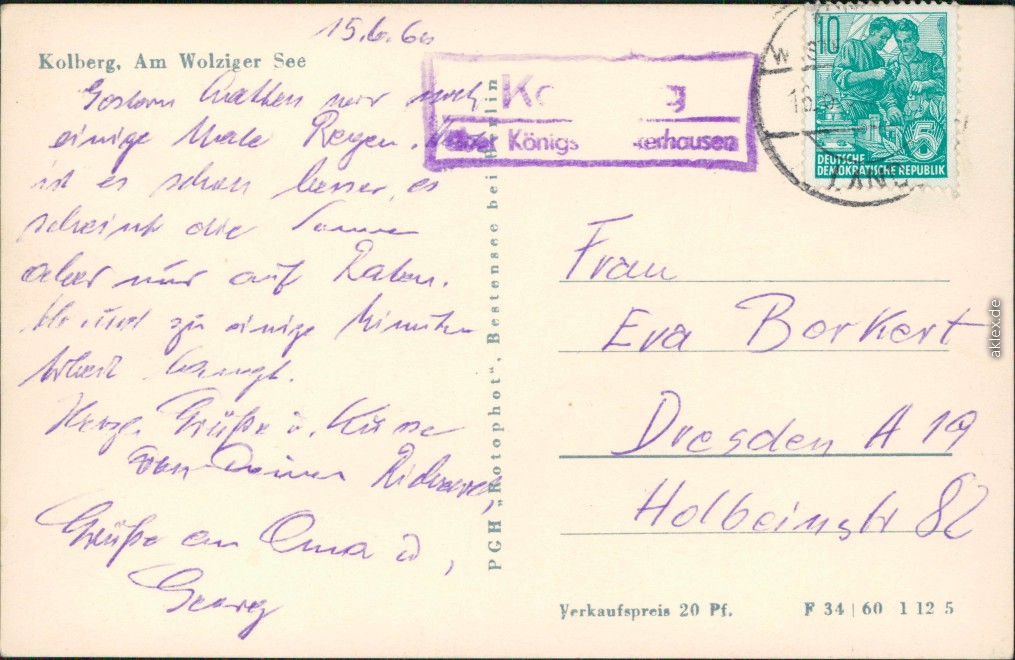 15.6.60
Kolberg, Am Wolziger See
Gestern hatten wir noch
einige Male Regen.
ist es schon besser, es
scheint die Sonne
aber nur auf Raten.
Ab und zu einige Minuten
Arbeit langt.
Herzl. Grüße u. Küsse
von Deinem Richard,
Grüße an Oma u,
Georg
PGH „Rotophot", Bestensee bei Berlin
über Königs
10
5
DEUTSCHE
DEMOKRATISCHE REPUBLIK
Frau
Eva Borkert
Dresden A 19
Holbeinstr 82
Verkaufspreis 20 Pf. F 34 | 60 1 12 5
aklex.de